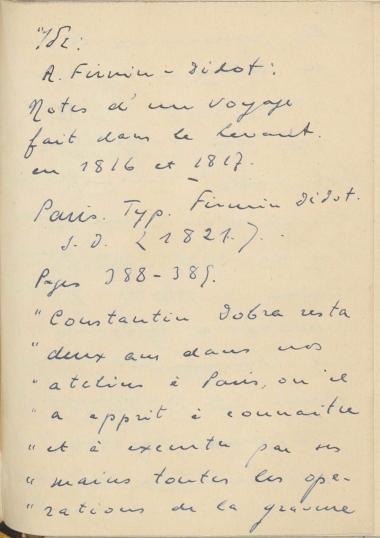 Ἰδέ:
A. Firmin-Didot:
Notes d'un voyage
fait dans le Levant.
en 1816 et 1817.
Paris. Typ. Firmin Didot.
S. D. (1821.).
Pages 388-389.
"Constantin Dobra resta
" deux ans dans nos
" atelies à Paris, où il
" a apprit à connaitre
" et à executer par ses
" mains toutes les ope-
" rations de la gravure